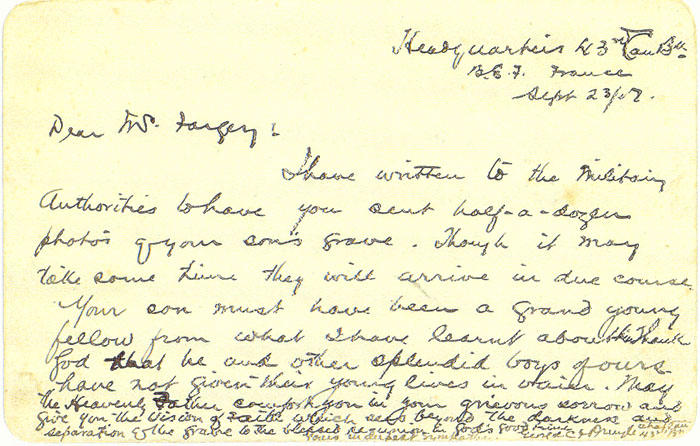 Headquarters 43rd Can Bn
B.E.F. France
Sept 23/17.
Dear Mr. Fargey:
I have written to the Military
Authorities to have you sent half-a-dozen
photos of your son's grave. Though it may
take some time they will arrive in due course.
Your son must have been a grand young
fellow from what I have learnt about him. Thank
God that he and other splendid boys of ours
have not given their young lives in vain. May
the Heavenly Father comfort you in your grievous sorrow and
give you the vision of Faith which sees beyond the darkness and
separation of the grave to the blessed reunion in God's good time.
Yours in deepest sympathy